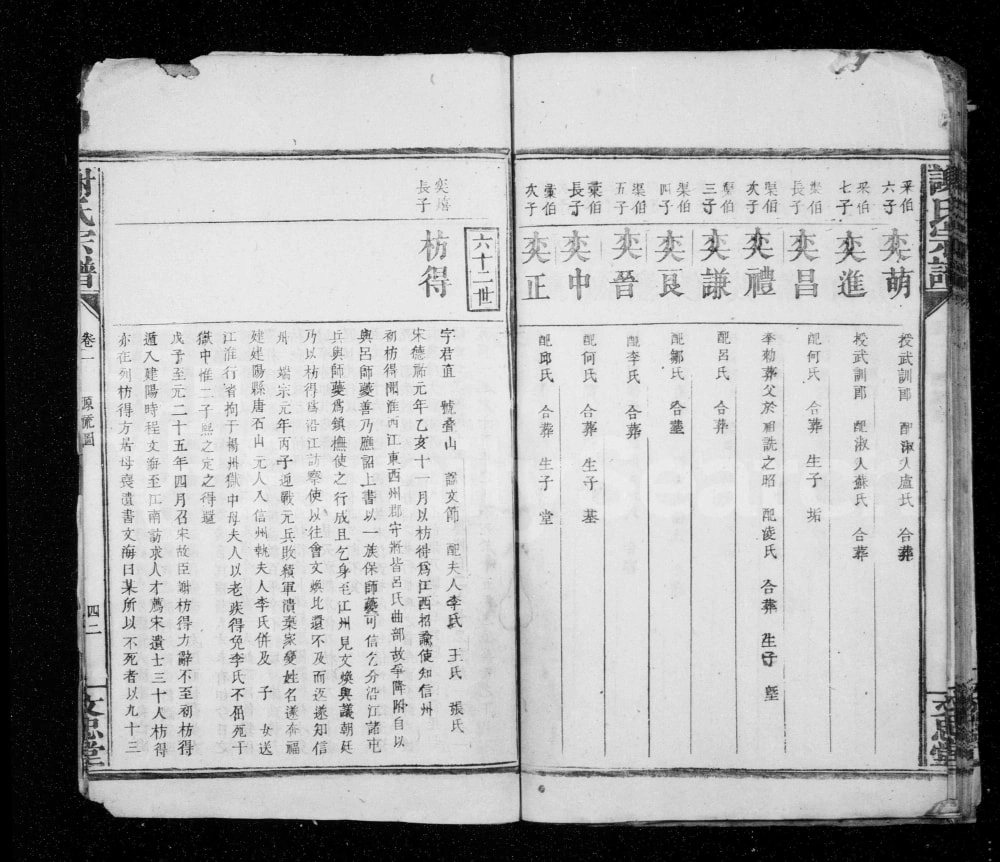 謝氏宗譜
文忠堂
采伯六子
奕萌
授武訓郎 配淑人盧氏 合葬
采伯七子
奕進
授武訓郎 配淑人蘇氏 合葬
棠伯長子
奕昌
配何氏 合葬 生子 垢
棠伯次子
奕禮
奉勅葬父於 之昭 配凌氏 合葬 生子 墍
三子
奕謙
配呂氏 合葬
棐伯四子
奕艮
配鄒氏 合墓
棐伯五子
奕晉
配李氏 合葬
橐伯長子
奕中
配何氏 合葬 生子 基
橐伯次子
奕正
配邱氏 合葬 生子 堂
六十二世
奕 長子
枋得
字君直 號疊山 諡文節 配夫人李氏 王氏 張氏
宋德祐元年乙亥十一月以枋得爲江西招諭使知信州
初枋得聞淮西江東西州郡守將皆呂氏曲部故爭降附自以
與呂師夔善乃應詔上書以一族保師夔可信乞分沿江諸屯
兵與師夔爲鎮撫使之行成且乞身至江州見文煥與議朝廷
乃以枋得爲沿江訪察使以往會文煥北還不及而返遂知信
州 端宗元年丙子迎戰元兵敗績軍潰棄家變姓名遂奔福
建建陽縣唐石山元人入信州執夫人李氏併及 子 女送
江淮行省拘于楊州獄中母夫人以老疾得免李氏不屈死于
獄中惟二子熙之定之得還
戊子至元二十五年四月召宋故臣謝枋得力辭不至初枋得
遁入建陽時程文海至江南訪求人才薦宋遺士三十人枋得
亦在列枋得方居母喪遺書文海曰某所以不死者以九十三
謝氏宗譜
卷一
源流圖
四二
文忠堂